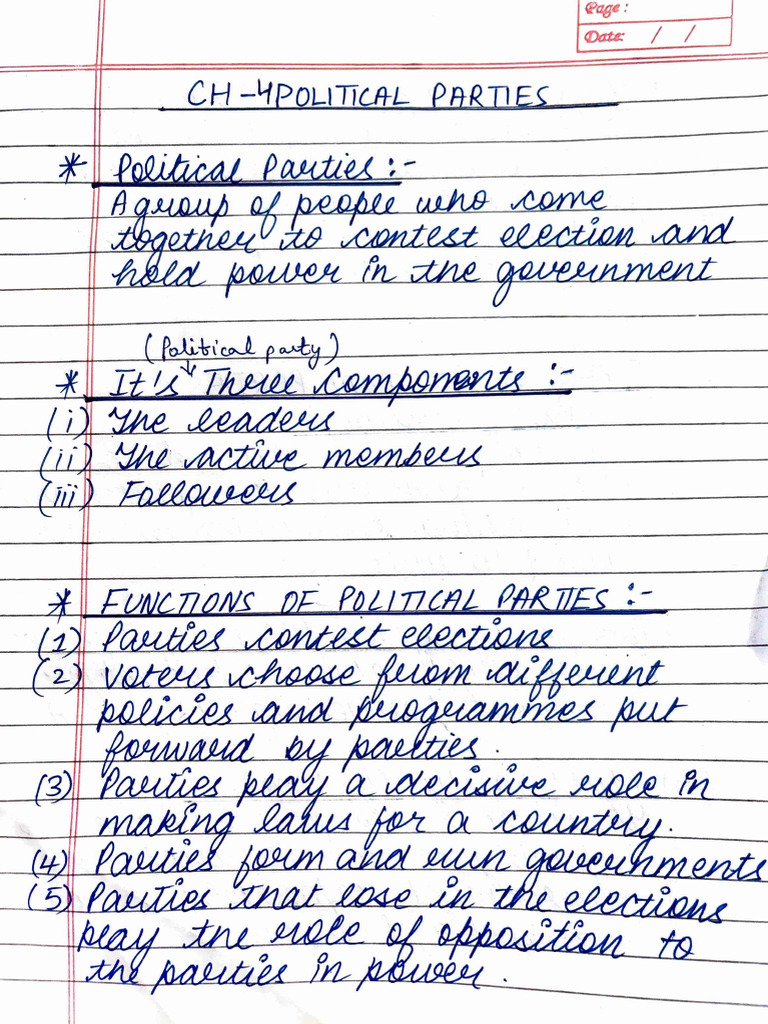 Page:
Date: / /
CH-4 POLITICAL PARTIES
* Political Parties :-
A group of people who come
together to contest election and
hold power in the government
(Political party)
* It's Three components :-
(i) The leaders
(ii) The active members
(iii) Followers
* FUNCTIONS OF POLITICAL PARTIES :-
(1) Parties contest elections
(2) Voters choose from different
policies and programmes put
forward by parties.
(3) Parties play a decisive role in
making laws for a country.
(4) Parties form and run governments
(5) Parties that lose in the elections
play the role of opposition to
the parties in power.